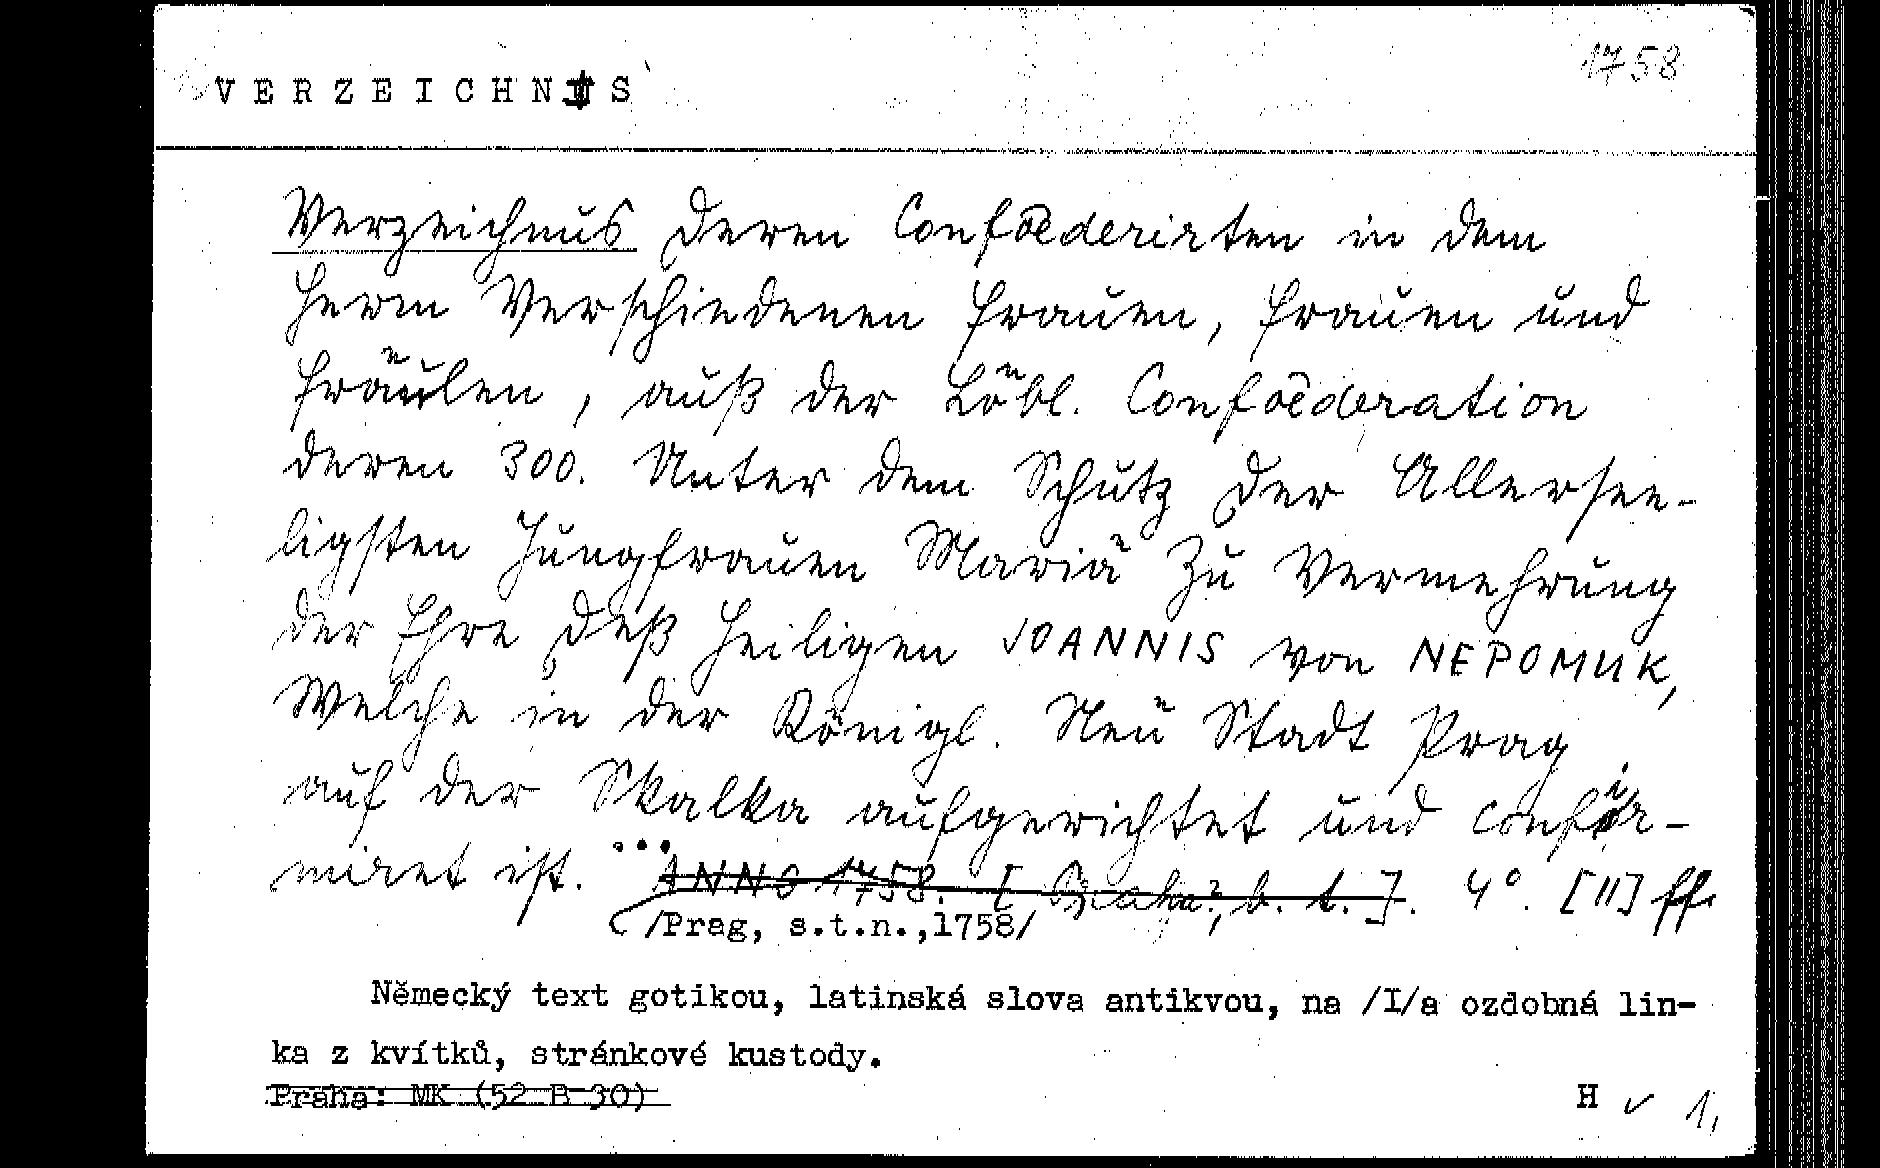 1758
VERZEICHNIS
Verzeichnus deren Confoederirten in dem
Herrn Verschiedenen Frauen, Frauen und
Fräulen, auß der Löbl. Confoederation
deren 300. Unter dem Schutz der Allersee-
ligsten Jungfrauen Mariä Zu Vermehrung
der Ehre deß Heiligen JOANNIS von NEPOMUK,
Welche in der Königl. Neu Stadt Prag
auf der Skalka aufgerichtet und confir-
miret ist. ... ANNO 1758. [Praha?, b. t.]. 4°. [II] ff.
/Prag, s.t.n.,1758/
Německý text gotikou, latinská slova antikvou, na /I/a ozdobná lin-
ka z kvítků, stránkové kustody.
Praha: MK (52 B 30)
H ✓ 1,